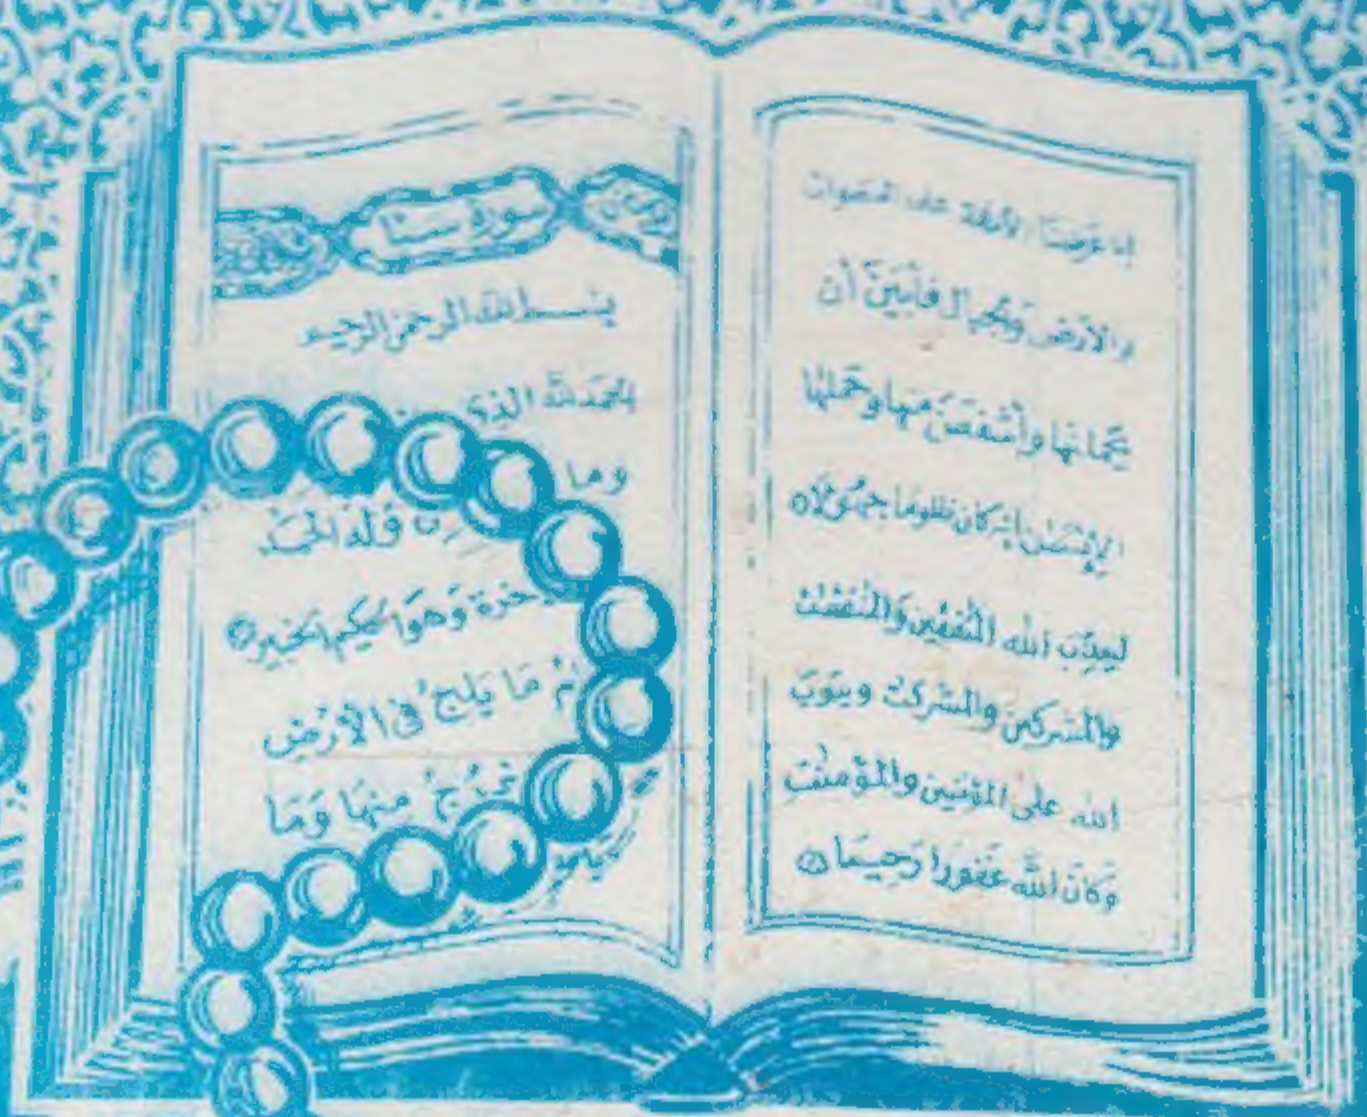 إنا عرضنا الأمانة على السموات
والأرض والجبال فأبين أن
يحملنها وأشفقن منها وحملها
الإنسن إنه كان ظلوما جهولا
ليعذب الله المنفقين والمنفقت
والمشركين والمشركت ويتوب
الله على المؤمنين والمؤمنت
وكان الله غفورا رحيما
سورة سبا
بسم الله الرحمن الرحيم
الحمد لله الذي
وما
وله الحمد
خرة وهو الحكيم الخبير
ما يلج في الأرض
يخرج منها وما